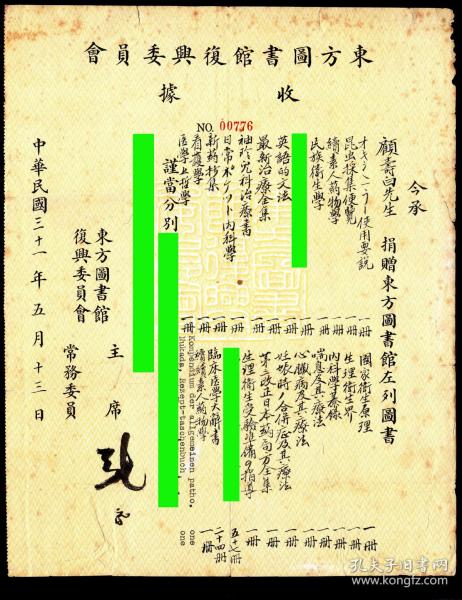 東方圖書館復興委員會
收據
NO. 00776
今承
顧壽白先生 捐贈東方圖書館左列圖書
オキシフラー使用要説 一冊
昆虫採集便覽 一冊
續素人药物學 一冊
民族衛生學 一冊
英語的文法 一冊
最新治療全集 一冊
袖珍児科治療書 一冊
日常ポケット内科學 一冊
新药抄集 一冊
看護學 一冊
医學上哲學 一冊
國家衛生原理 一冊
生理衛生界 一冊
内科學纂錄 一冊
喘息及其療法 一冊
心臟病及其療法 一冊
妊娠時ノ合併症及其療法 一冊
第六改正日本药局方全集 一冊
生理衛生受驗準備の指導 一冊
五十七冊
臨床医學大辭書 二十四冊
續續素人药物學 一冊
Kompendium der allgemeinen patho. one
Rezept-taschenbuch one
謹當分別
東方圖書館
復興委員會
主席
常務委員
中華民國三十一年五月十三日
孔夫子旧书网
www.kongfz.com